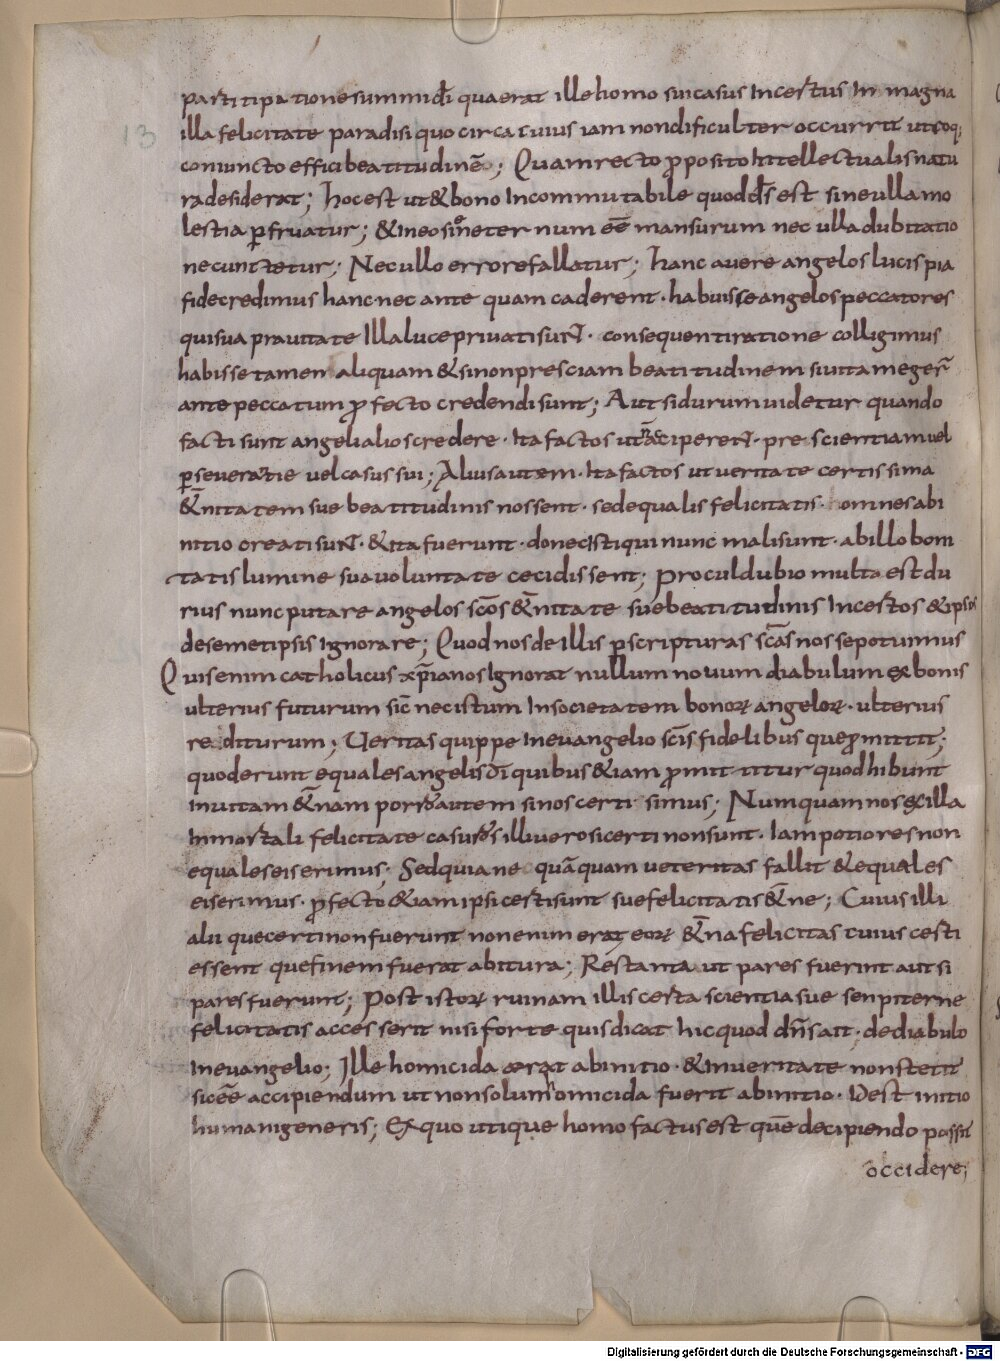 partitipatione summi di quaerat ille homo sui casus Incertus In magna
illa felicitate paradisi quo circa cuius iam nondificulter occurrit utroq;
coniuncto effici beatitudinē; Quam recto pposito Intellectualis natu
ra desiderat; hoc est ut & bono Incommutabile quod ds est sine ulla mo
lestia pfruatur; & in eo sine eternum eē mansurum nec ulla dubitatio
ne cunctetur; Nec ullo errore fallatur; hanc auere angelos lucis pia
fide credimus hanc nec ante quam caderent · habuisse angelos peccatores
qui sua prauitate Illa luce priuati sunt · consequenti ratione colligimus
habisse tamen aliquam & si non presciam beatitudinem si uitam eger̄
ante peccatum pfecto credendi sunt; Aut si durum uidetur quando
facti sunt angeli alios credere · Ita factos ut n̄ acciperent · prescientiam uel
pseueratie uel casus sui; Alius autem · Ita factos ut ueritate certissima
&n̄itatem sue beatitudinis nossent · sed equalis felicitatis · omnes ab i
nitio creati sunt · & ita fuerunt · donec Isti qui nunc mali sunt · ab illo boni
tatis lumine sua uoluntate cecidissent; Procul dubio multa est du
rius nunc putare angelos scōs &n̄itate sue beatitudinis Incertos & ipsos
de semetipsis Ignorare; Quod nos de illis p scripturas scās nosse potuimus
Quis enim catholicus xp̄ianos Ignorat nullum nouum diabulum ex bonis
ulterius futurum sic̄ nec istum In societatem bonoꝝ angeloꝝ · ulterius
rediturum; Ueritas quippe In euangelio scīs fidelibus que pmittit;
quod erunt equales angelis dī quibus & iam pmittitur quod hibunt
In uitam &n̄am porro autem si nos certi simus; Numquam nos ex illa
Inmortali felicitate casuros illi uero si certi non sunt · Iam potiores non
equales eis erimus · Sed quia ne quāquam ueteritas fallit & equales
eis erimus · pfecto & iam ipsi certi sunt sue felicitatis &n̄e; Cuius illi
alii que certi non fuerunt non enim erat eoꝝ &n̄a felicitas cuius certi
essent que finem fuerat abitura; Restant a ut pares fuerint aut si
pares fuerunt; Post istoꝝ ruinam illis certa scientia sue senpiterne
felicitatis accesserit nisi forte quis dicat hic quod dn̄s ait · de diabulo
In euangelio; Ille homicida erat ab initio · & in ueritate non stetit
sic eē accipiendum ut non solum homicida fuerit ab initio · Id est initio
humani generis; Ex quo utique homo factus est quē decipiendo possit
occidere;